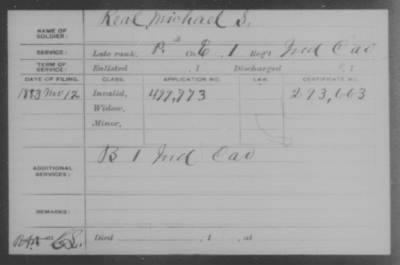 NAME OF SOLDIER: Real, Michael S.
SERVICE: Late rank, P. Co. E, 1 Reg't Ind Cav
TERM OF SERVICE: Enlisted , 1 Discharged , 1
DATE OF FILING. CLASS. APPLICATION NO. LAW. CERTIFICATE NO.
1883 12 Invalid, 477,773 273,663
Widow,
Minor,
ADDITIONAL SERVICES: B 1 Ind Cav
REMARKS:
Died , 1 , at